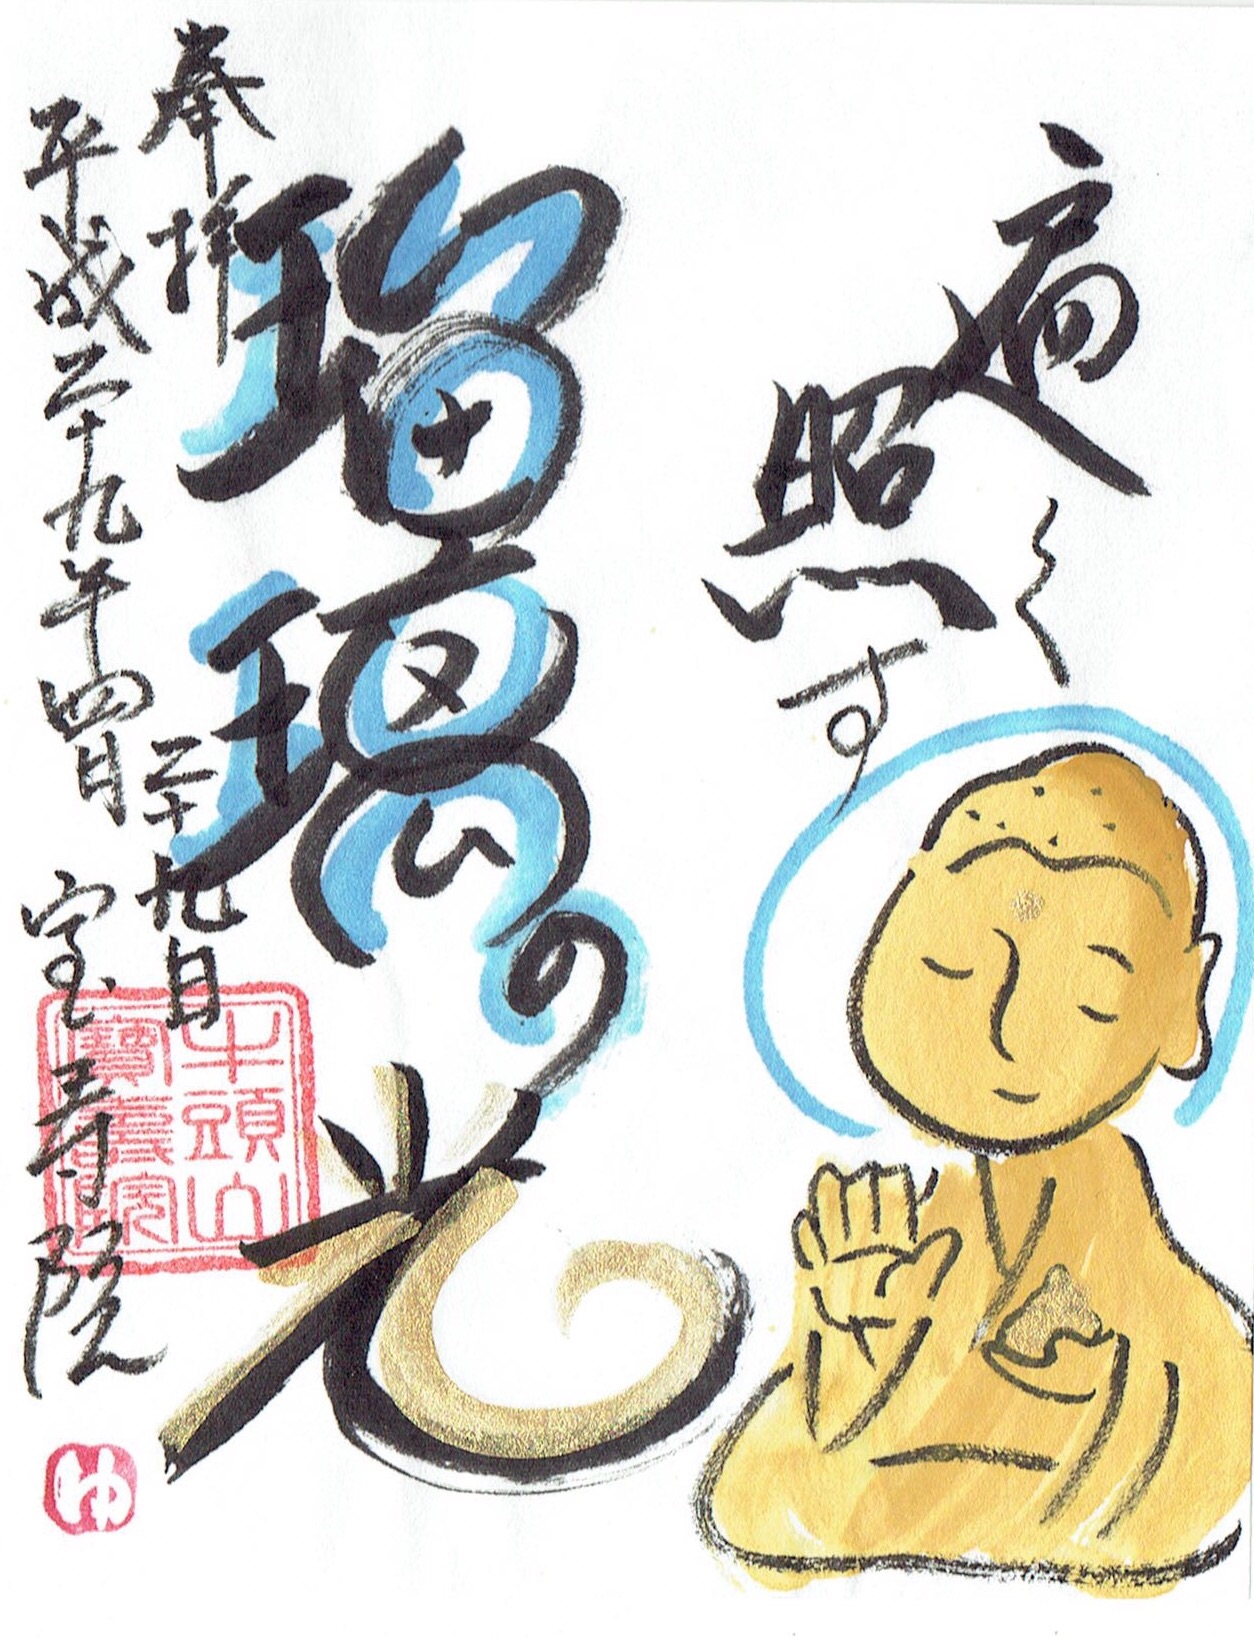 遍く
照す
瑠璃の光
奉拝
平成二十九年四月
二十九日
宝寿院
牛頭山
寶壽院
ゆ